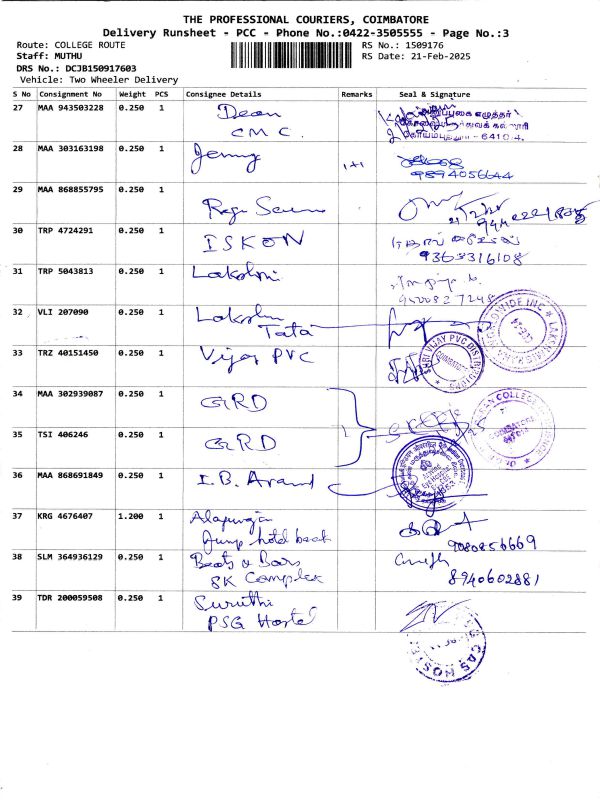 THE PROFESSIONAL COURIERS, COIMBATORE
Delivery Runsheet - PCC - Phone No.:0422-3505555 - Page No.:3
Route: COLLEGE ROUTE RS No.: 1509176
Staff: MUTHU RS Date: 21-Feb-2025
DRS No.: DCJB150917603
Vehicle: Two Wheeler Delivery
S No Consignment No Weight PCS Consignee Details Remarks Seal & Signature
27 MAA 943503228 0.250 1 Dean
CMC
28 MAA 303163198 0.250 1 Jenny
9894056644
29 MAA 868855795 0.250 1
30 TRP 4724291 0.250 1 ISKON
9363316108
31 TRP 5043813 0.250 1 Lakshmi
9400827248
32 VLI 207090 0.250 1 Lakshmi
Tata
33 TRZ 40151450 0.250 1 Vijay PVC
SHRI VIJAY PVC
34 MAA 302939087 0.250 1 GRD
35 TSI 406246 0.250 1 GRD
36 MAA 868691849 0.250 1 I.B. Anand
37 KRG 4676407 1.200 1
Jump hotel back
9080856669
38 SLM 364936129 0.250 1 Beats & Bars
SK Complex
8940602881
39 TDR 200059508 0.250 1 Suruthi
PSG Hostel
CAS HOSTEL